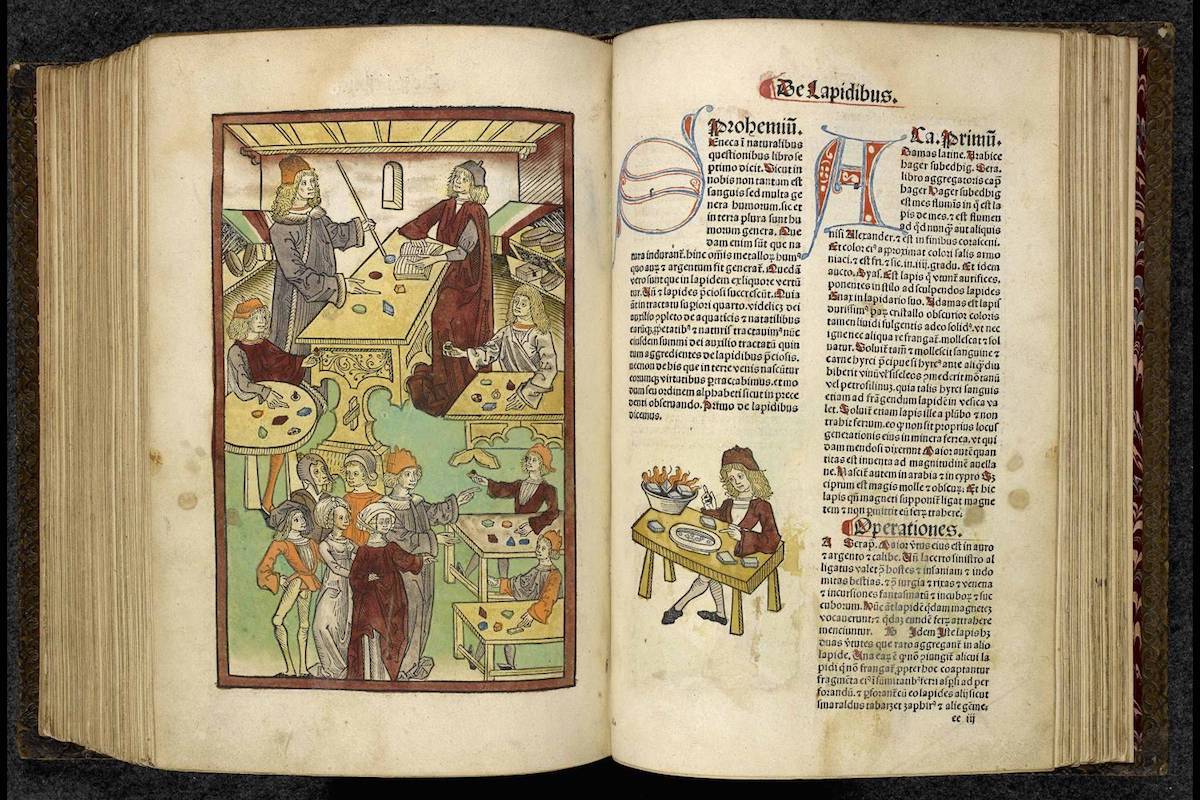 De Lapidibus.
Prohemiū.
Seneca ī naturalibus
questionibus libro se
ptimo dicit. Sicut in
nobis non tantum est
sanguis sed multa ge
nera humorum. sic et
in terra plura sunt hu
morum genera. Que
dam enim sūt que na
tura indurant̄. hinc om̄is
quo auꝝ ⁊ argentum fit Quedā
vero sunt que in lapidem ex liquore vertū
tur. lapides p̄ciosi succrescūt. Quia
in tractatu supiori quarto. videlicꝫ dei
auxilio ꝯpleto de aquaticis ⁊ natatilibus
⁊ naturis tractauimꝰ nūc
eiusdem summi dei auxilio tractatū quin
tum aggredientes de lapidibus p̄ciosis.
necnon de his que in terre venis nascūtur
virtutibus et mo
dum seu ordinem alphabeti sicut in prece
denti obseruando. Primo de lapidibus
dicemus.
Ca. Primū.
Adamas latine. Arabice
hager subedhig. Sera.
libro aggregatoris cap̄
hager Hager subedhig
est mes flumīs in q̄ est la
pis de mes. ⁊ est flumen
ad qd̄ nunqᷓ aut aliquis
nisi Alexander. ⁊ est in finibus coraseni.
Et color eiꝰ approximat colori salis armo
niaci. ⁊ est fri. ⁊ sic. in .iiij. gradu. Et idem
aucto. Dyas. Est lapis quo vtunt̄ aurifices.
ponentes in stilo ad sculpendos lapides
Enax in lapidario suo. Adamas est lapis
durissimꝰ cristallo obscurior coloris
tamen luridi fulgentis adeo solidꝰ. vt nec
igne nec aliqua re frangat̄. mollescat ⁊ sol
uatur. Soluit̄ tam̄ ⁊ mollescit sanguine ⁊
carne hyrci p̄cipue si hyrcꝰ ante aliqᷓdiu
biberit vinū siseleos
vel petrosilinū. quia talis hyrci sanguis
etiam ad frāgendum lapidē in vesica va
let. Soluit etiam lapis ille a plūbo ⁊ non
trahit ferrum. eo ꝙ non sit proprius locus
generationis eius in minera ferrea. vt qui
dam mendosi dixerunt. Maior aut̄ quan
titas est inuenta ad magnitudinē auella
ne. Nascit̄ autem in arabia ⁊ in cypro Sꝫ
ciprium est magis molle ⁊ obscuꝝ. Et hic
lapis magneti supponit̄ ligat magne
tem ⁊ non ꝑmittit eū ferꝝ trahere.
Operationes.
A Serap. Maior vꝰtus eius est in auro
⁊ argento ⁊ calibe. lacerto sinistro al
ligatus valet hostes ⁊ insaniam ⁊ indo
mitas bestias. ⁊ iurgia ⁊ rixas ⁊ venena
⁊ incursiones fantasmatū ⁊ incuboꝝ ⁊ suc
cuborum. lapidē qdam magnetez
vocauerunt ⁊ eundē ferꝝ attrahere
menciuntur. Idem Iste lapis
duas vꝰtutes que raro aggregant̄ in alio
lapide. Una alicui la
pidi non frangat̄. ꝓpter hoc coaptantur
fragmēta ferri ad per
forandū. ⁊ cū eo lapides alij sicut
smaraldus ⁊ alie
ee iij